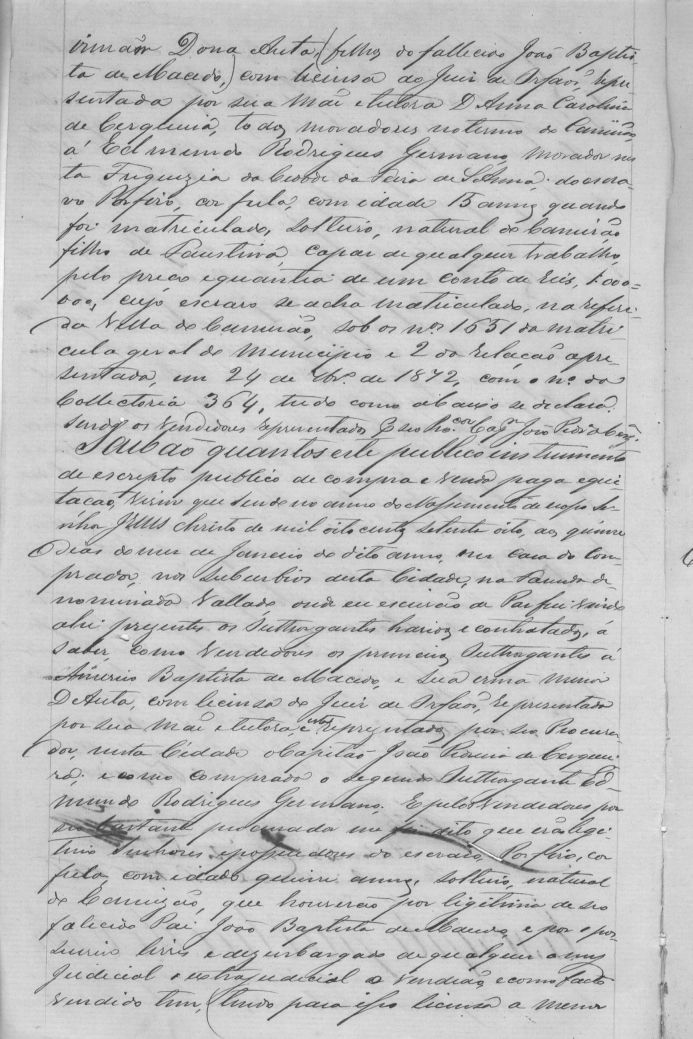 irmãn Dona Anta, (filhos do fallecido João Baptis-
ta de Macedo,) com licensa do Juiz de Orfãos, repre-
sentada por sua Mãe e tutora D Anna Carolina
de Cerqueira, todos moradores no termo de Camizão,
á Edmundo Rodrigues Germano, morador nes-
ta Freguezia da Cidade da Feira de S Anna: do escra-
vo Porfiro, cor fula, com idade 15 annos quando
foi matriculado, solteiro, natural de Camizão
filho de Faustina, capaz de qualquer trabalho,
pelo preço e quantia de um conto de reis, 1:000-
000, cujo escravo se acha matriculado, na referi-
da Villa do Camizão, sob os nos 1651 da matri-
cula geral do Municipio e 2 da relação apre-
sentada, em 24 de de 1872, com o no. da
Collectoria 364, tudo como abaixo se declara.
Sendo os vendedores reprentados João
Saibão quantos este publico instrumento
de escripto publico de compra e venda paga e qui-
tação, virem que sendo no anno do Nassimento de nosso Se-
nhor Jesus Christo de mil oito cento setenta oito, aos quinze
dias do mez de Janeiro do dito anno, em casa do Com-
prador, nos suburbios desta Cidade, na Fasenda de
nominada Vallado, onde eu escrivão de Paz fui vindo
ahi prezentes os Outhorgantes havidos e contratados, á
saber, como vendedores os primeiros Outhorgantes á
Baptista de Macedo, e sua ermã menor
D Anta, com licensa do Juiz de Orfãos, representada
por sua Mãe e tutora, e reprezentados por seo Procura-
dor, nesta Cidade o Capitão João Pedreira de Cerquei-
ra; e como comprador o segundo Outhorgante Ed-
mundo Rodrigues Germano. E pelos Vendedores por
seo bastante procurador me foi dito que erão legi-
timos Senhores e possuidores do escravo, Porfiro, cor
fula, com idade quinze annos, solteiro, natural
de Camizão, que houverão por ligitima de seo
falecido Pai João Baptista de Macedo, e por o pos-
suirem livre e dezembargado de qualquer onus
judicial e extrajudicial o vendião e como facto
vendido tem, (tendo para isso licensa a menor